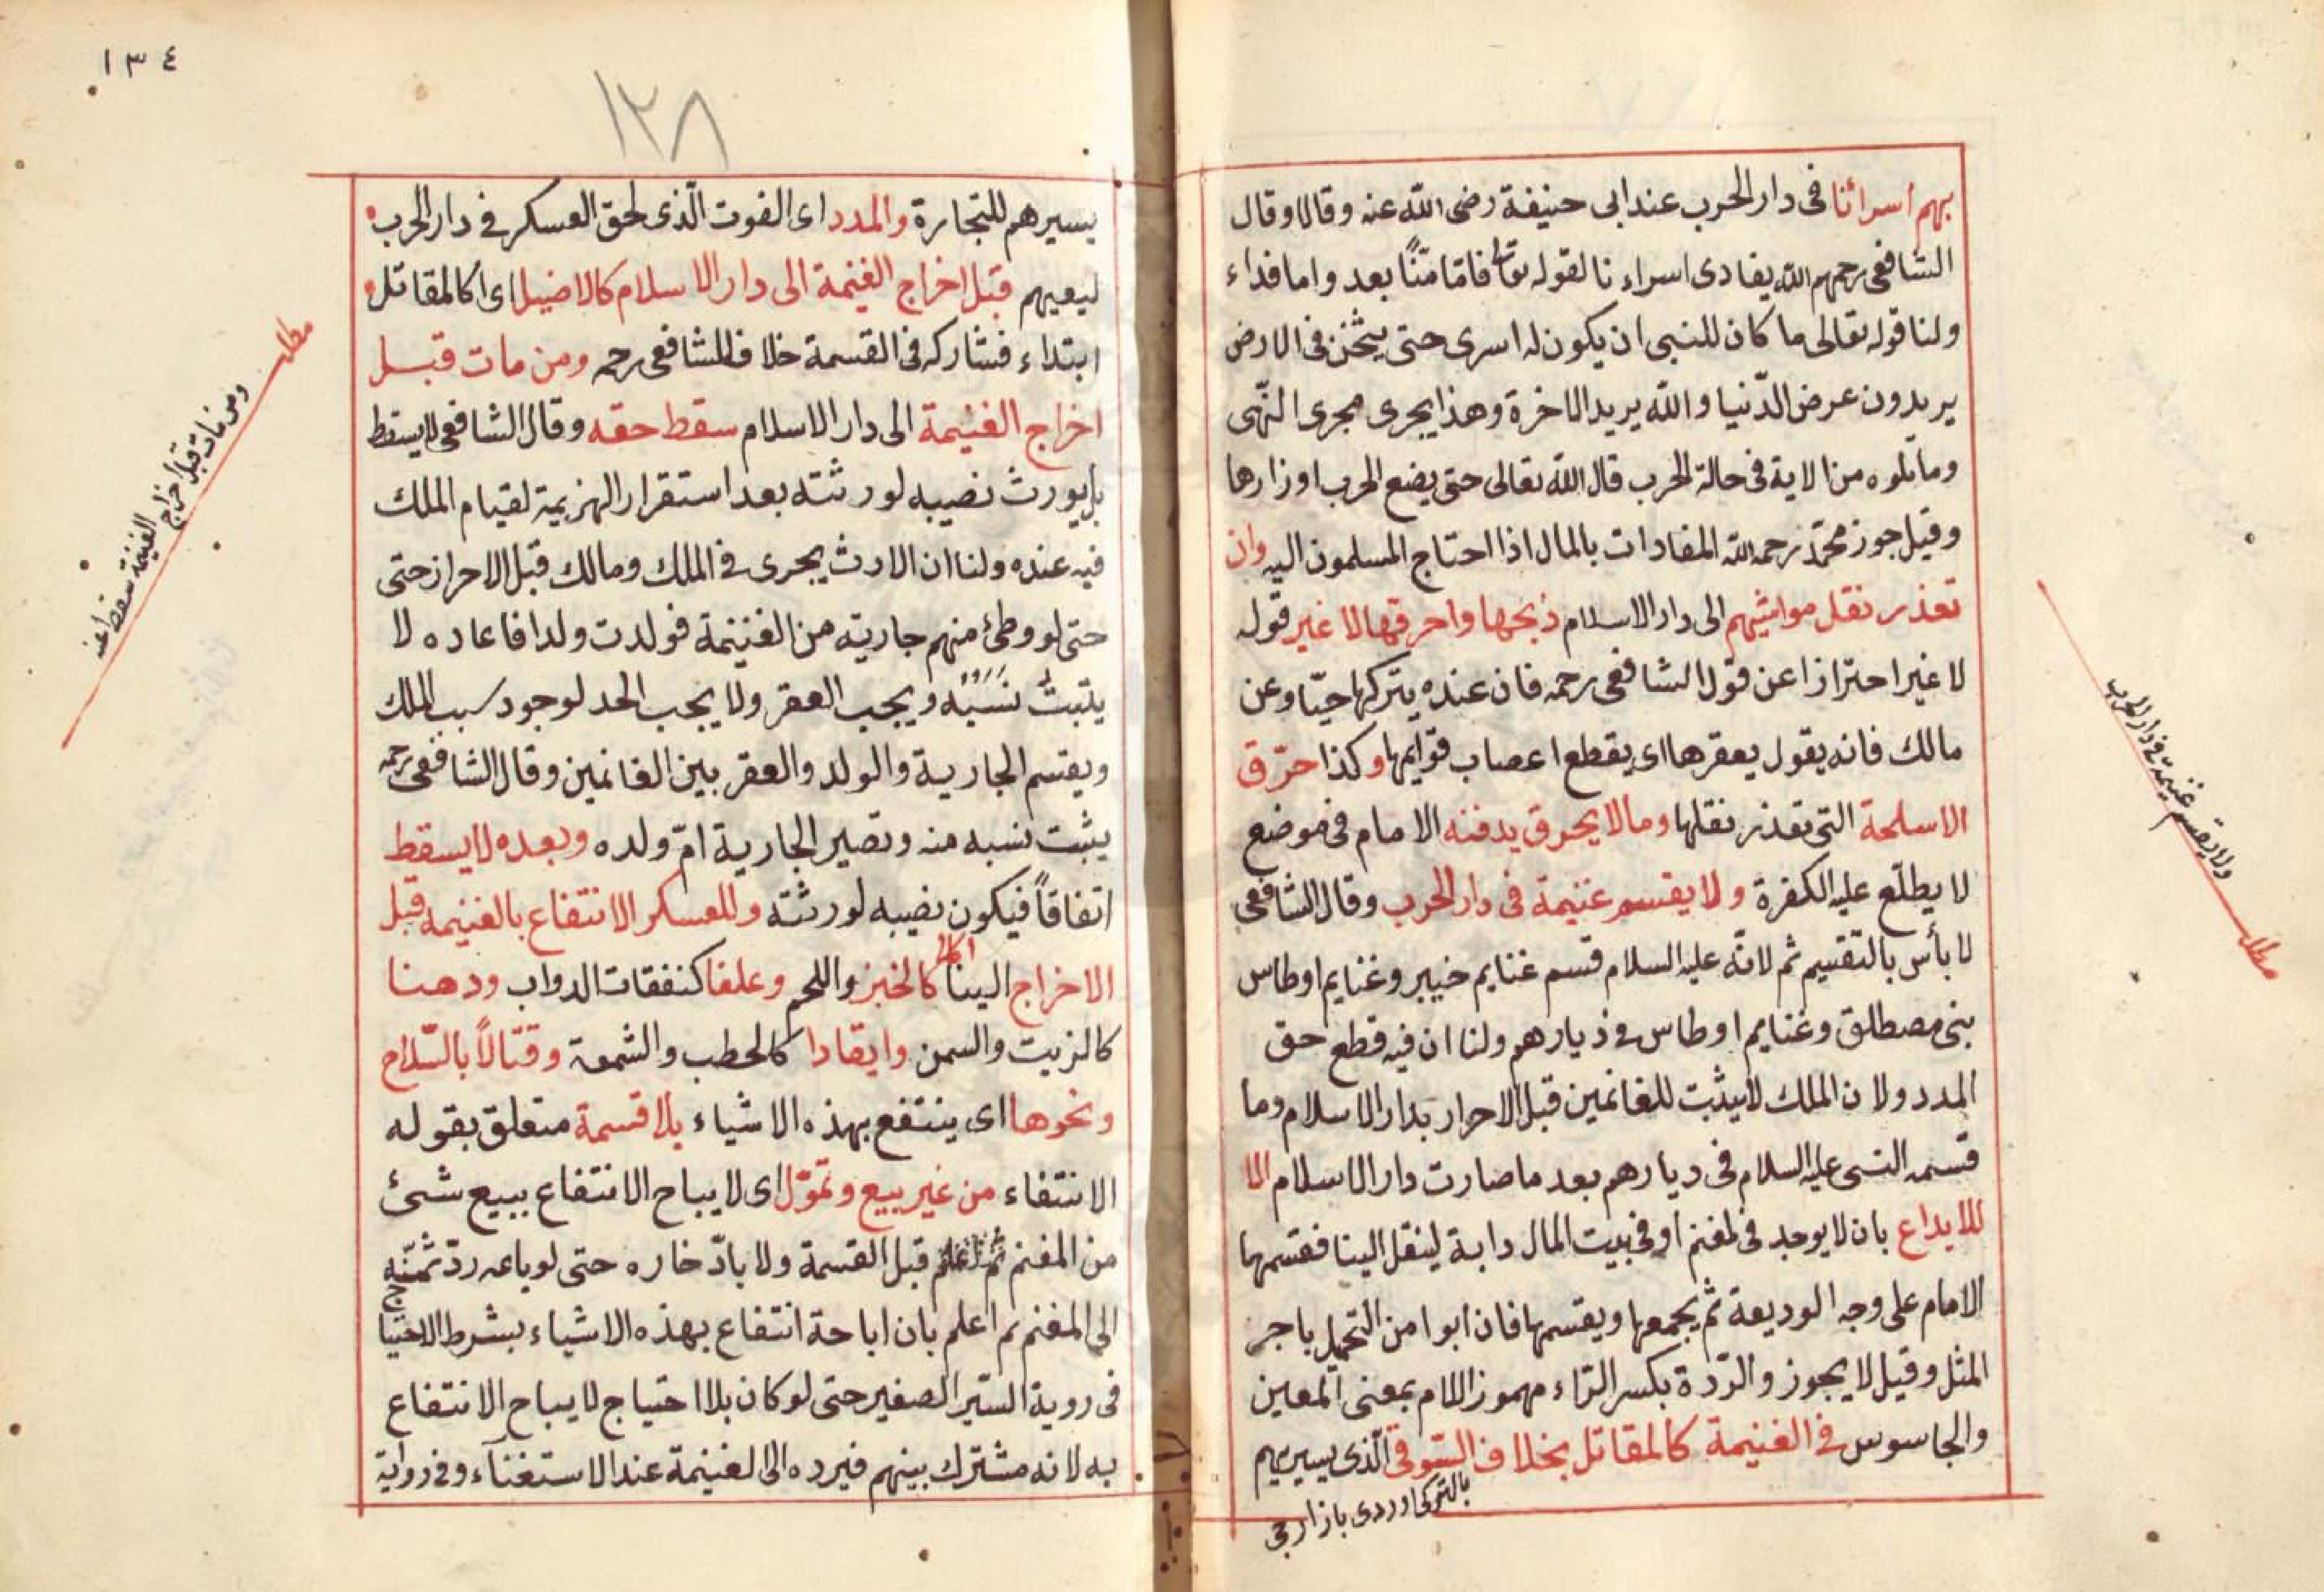 بهم أسرائنا فى دار الحرب عند ابى حنيفة رضى الله عنه وقالا وقال
الشافعى رحمهم الله يفادى اسراء نا لقوله تعالى فامّا منّاً بعد واما فداء
ولنا قوله تعالى ما كان للنبى ان يكون له اسرى حتى يثخن فى الارض
يريدون عرض الدّنيا والله يريد الاخرة وهذا يجرى مجرى النّهى
وما تلوه من الاية فى حالة الحرب قال الله تعالى حتى يضع الحرب اوزارها
وقيل جوز محمّد رحمه الله المفادات بالمال اذا احتاج المسلمون اليه وان
تعذر نقل مواشيهم الى دار الاسلام ذبحها واحرقها لا غير قوله
لا غير احترازا عن قول الشافعى رحمه فان عنده يتركها حيّا وعن
مالك فانه يقول يعقرها اى يقطع اعصاب قوايمها وكذا حرّق
الاسلحة التى تعذر نقلها وما لا يحرق يدفنه الامام فى موضع
لا يطلّع عليه الكفرة ولا يقسم غنيمة فى دار الحرب وقال الشافعى
لا بأس بالتقسيم ثم لانّه عليه السلام قسم غنايم خيبر وغنايم اوطاس
بنى مصطلق وغنايم اوطاس فى ديارهم ولنا ان فيه قطع حق
المدد ولان الملك لا يثبت للغانمين قبل الاحرار بدار الاسلام وما
قسمه النبى عليه السلام فى ديارهم بعد ما صارت دار الاسلام الا
للايداع بان لا يوجد فى لمغنم أو فى بيت المال دابة لينقل الينا فقسمها
الامام على وجه الوديعة ثم يجمعها ويقسمها فان ابوا من التحمل باجر
المثل وقيل لا يجوز والرّدة بكسر الرّاء مهموز اللام بمعنى المعين
والجاسوس فى الغنيمة كالمقاتل بخلاف السّوقى الّذى يسيربهم
بالتركى اوردى بازارجى
ولا يقسم غنيمة فى دار الحرب
مطلب
١٣٤
١٢٨
يسيرهم للتجارة والمدد اى الفوت الّذى لحق العسكر فى دار الحرب
ليعيهم قبل اخراج الغنيمة الى دار الاسلام كالاصيل اى كالمقاتل
ابتداء فشاركه فى القسمة خلافا للشافعى رحمه ومن مات قبل
اخراج الغنيمة الى دار الاسلام سقط حقه وقال الشافعى لا يسقط
بل يورث نصيبه لورثته بعد استقرار الهزيمة لقيام الملك
فيه عنده ولنا ان الارث يجرى فى الملك ومالك قبل الاحراز حتى
حتى لو وطئ منهم جارية من الغنيمة فولدت ولدا فاعاده لا
يثبتُ نَسَبُه ويجب العقر ولا يجب الحد لوجود سبب الملك
ويقسم الجارية والولد والعقر بين الغانمين وقال الشافعى رحمه
يثبت نسبه منه وتصير الجارية امّ ولده وبعده لا يسقط
اتفاقاً فيكون نصيبه لورثته وللعسكر الانتفاع بالغنيمه قبل
الاخراج الينا اكلا كالخبز واللحم وعلفا كنفقات الدواب ودهنا
كالزيت والسمن وايقادا كالحطب والشمعة وقتالاً بالسّلاح
ونحوها اى ينتفع بهذه الاشياء بلا قسمة متعلق بقوله
الانتفاء من غير بيع وتموّل اى لا يباح الانتفاع ببيع شئ
من المغنم قبل القسمة ولا بادّخاره حتى لو باعه ردّ ثمنه
الى المغنم ثم اعلم بان اباحة انتفاع بهذه الاشياء بشرط الاحتياج
فى روية السّير الصغير حتى لو كان بلا احتياج لا يباح الانتفاع
به لانه مشترك بينهم فيرده الى الغنيمة عند الاستغنآء وفى رواية
مطلب
ومن مات قبل اخراج الغنيمة سقط عنه